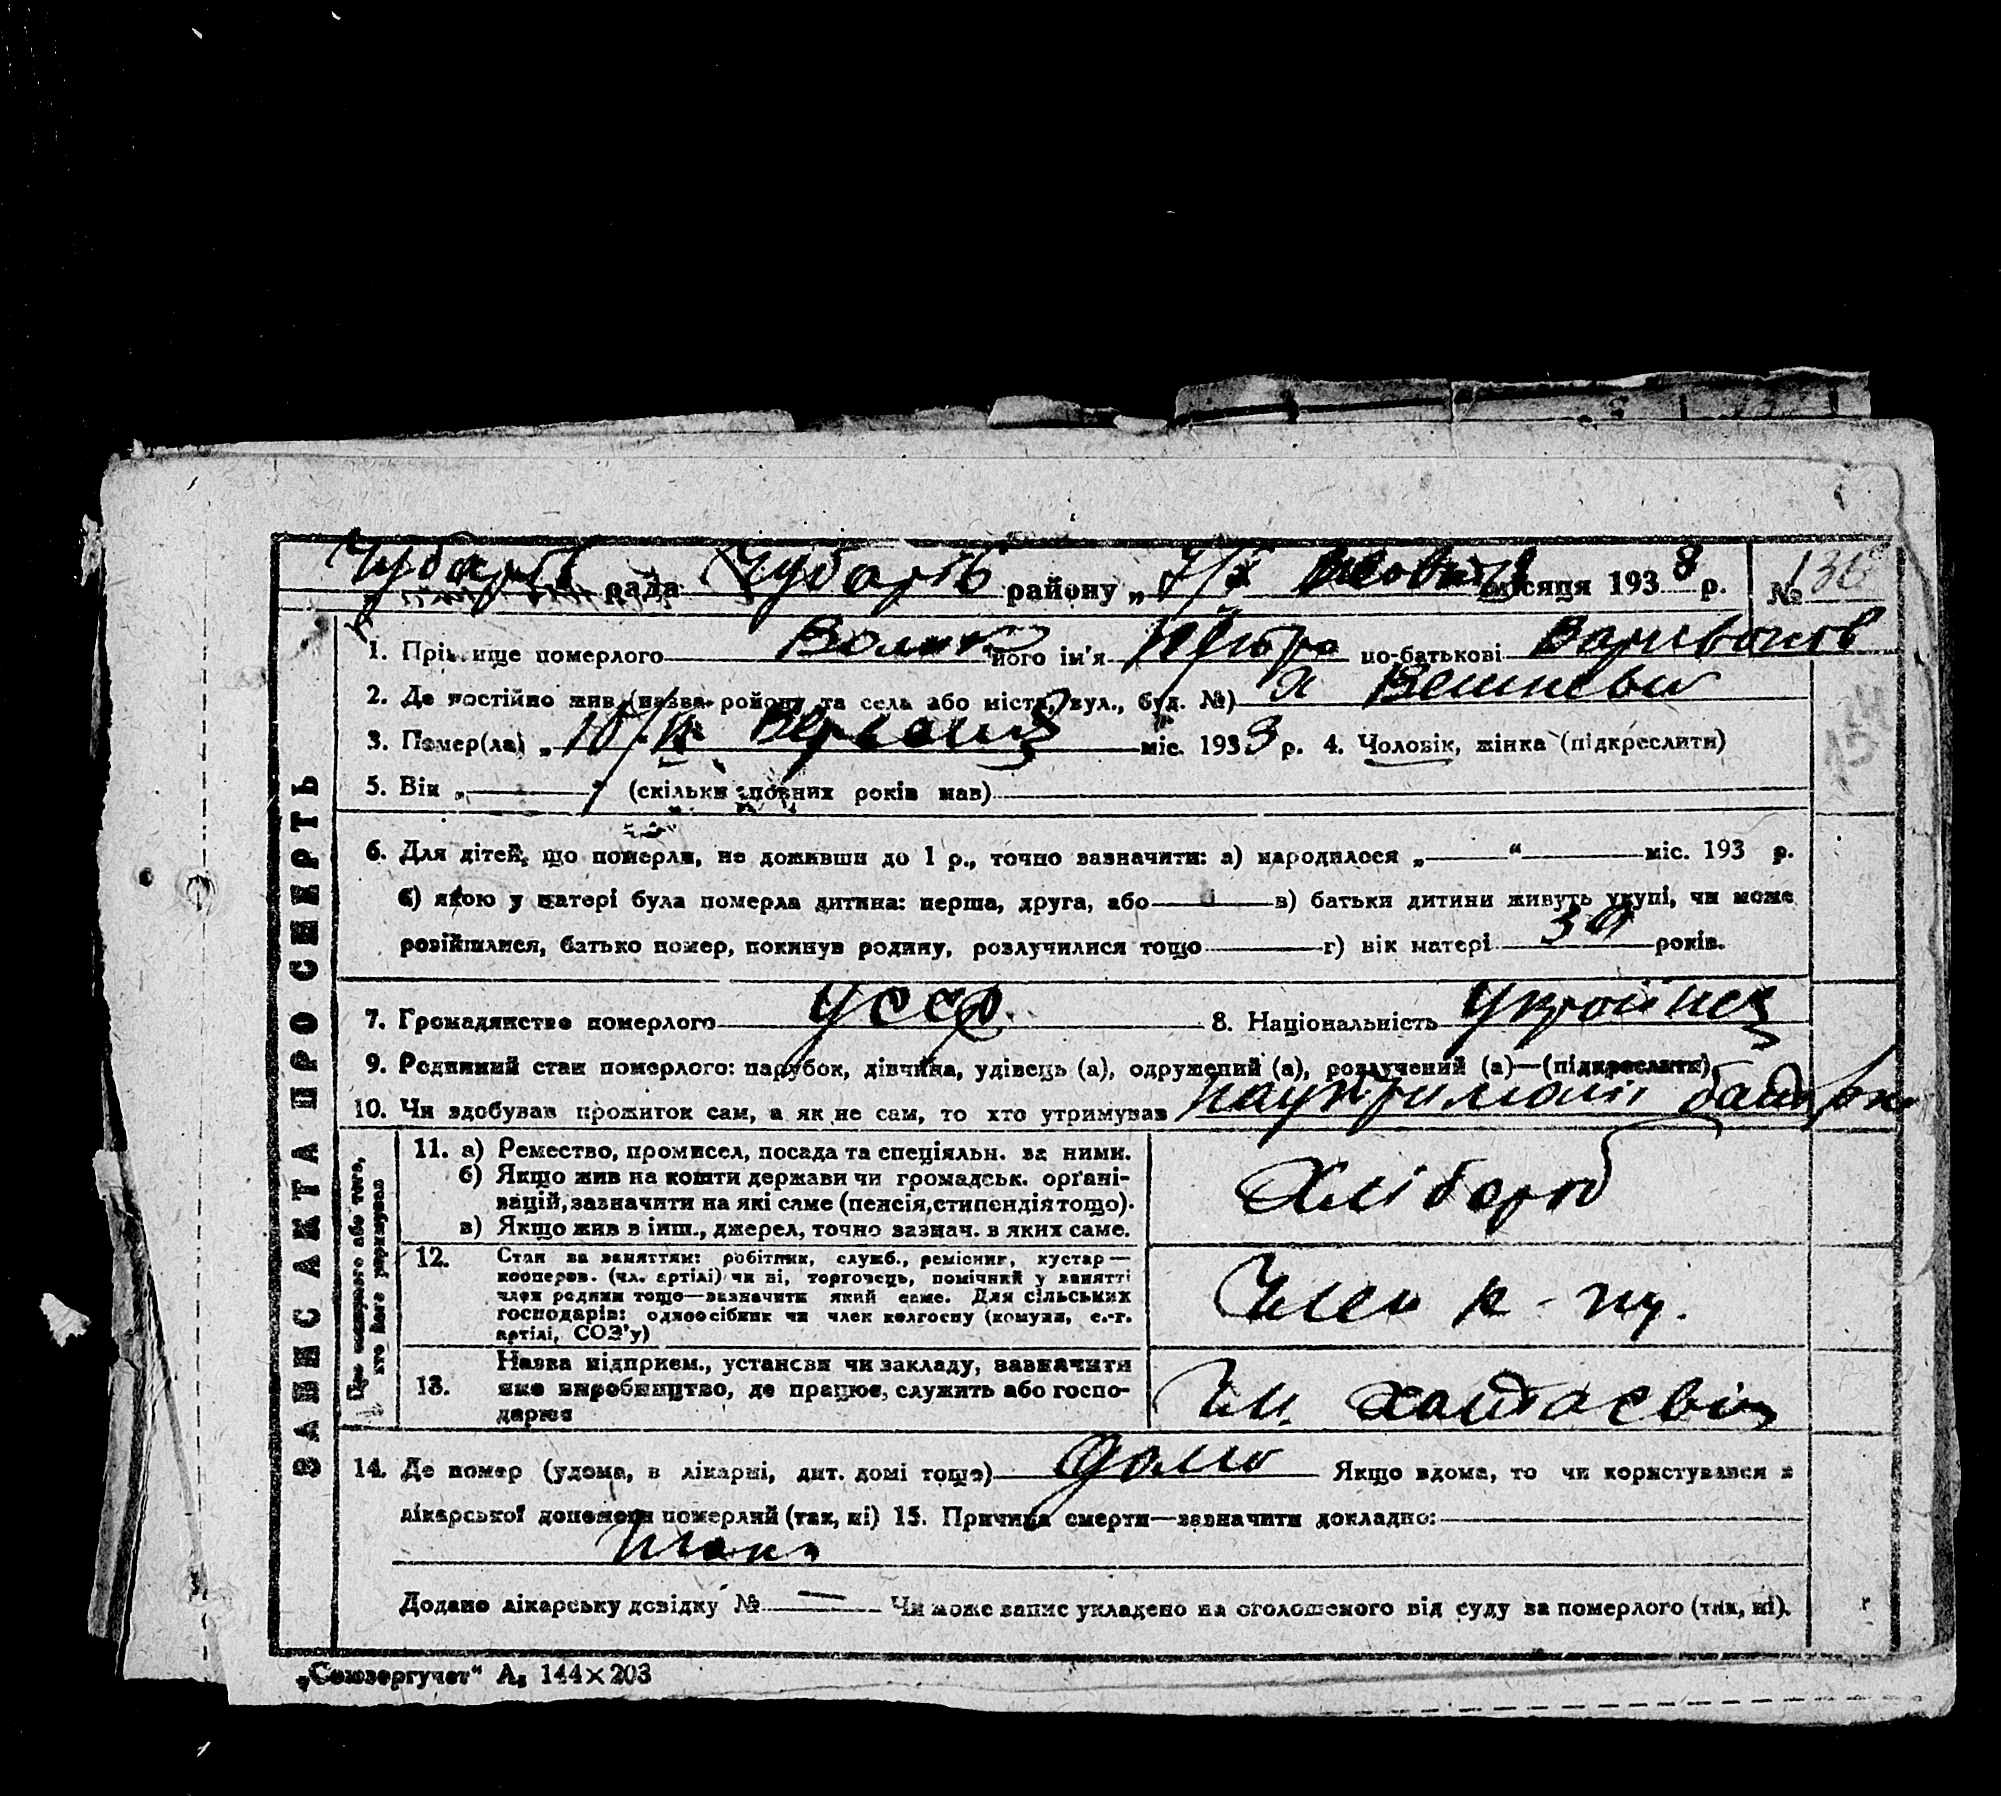 Чубарів рада Чубарів району „7/X жовтня місяця 1933 р. № 136
1. Прізвище померлого його ім'я Петро по-батькові
2. Де постійно жив (назва району та села або міста, вул., буд. №)
3. Помер(ла) „10/ міс. 1933 р. 4. Чоловік, жінка (підкреслити)
5. Вік „ (скільки повних років мав)
6. Для дітей, що померли, не доживши до 1 р., точно зазначити: а) народилося „ “ міс. 193 р.
б) якою у матері була померла дитина: перша, друга, або в) батьки дитини живуть укупі, чи може
розійшлися, батько помер, покинув родину, розлучилися тощо г) вік матері 39 років.
7. Громадянство померлого УССР. 8. Національність Украинец
9. Родинний стан померлого: парубок, дівчина, удівець (а), одружений (а), розлучений (а)—(підкреслити)
10. Чи здобував прожиток сам, а як не сам, то хто утримував на утриманні батьки
ЗАПИС АКТА ПРО СМЕРТЬ
Про померлого або того,
хто його утримував
11. а) Ремество, промисел, посада та спеціяльн. за ними.
б) Якщо жив на кошти держави чи громадськ. орґані-
зацій, зазначити на які саме (пенсія, стипендія тощо).
в) Якщо жив з інш., джерел, точно зазнач. з яких саме.
Хлібороб
12. Стан за заняттям: робітник, служб., ремісник, кустар—
кооперов. (чл. артілі) чи ні, торговець, помічник у занятті
член родини тощо—зазначити який саме. Для сільських
господарів: одноосібник чи член колгоспу (комуни, с.-г.
артілі, СОЗ'у)
Член к-пу.
13. Назва підприєм., установи чи закладу, зазначити
яке виробництво, де працює, служить або госпо-
дарює
Ім.
14. Де помер (удома, в лікарні, дит. домі тощо) дома Якщо вдома, то чи користувався з
лікарської допомоги померлий (так, ні) 15. Причина смерти—зазначити докладно:
Додано лікарську довідку № — Чи може запис укладено на оголошеного від суду за померлого (так, ні).
„Союзоргучет“ А₅ 144×203